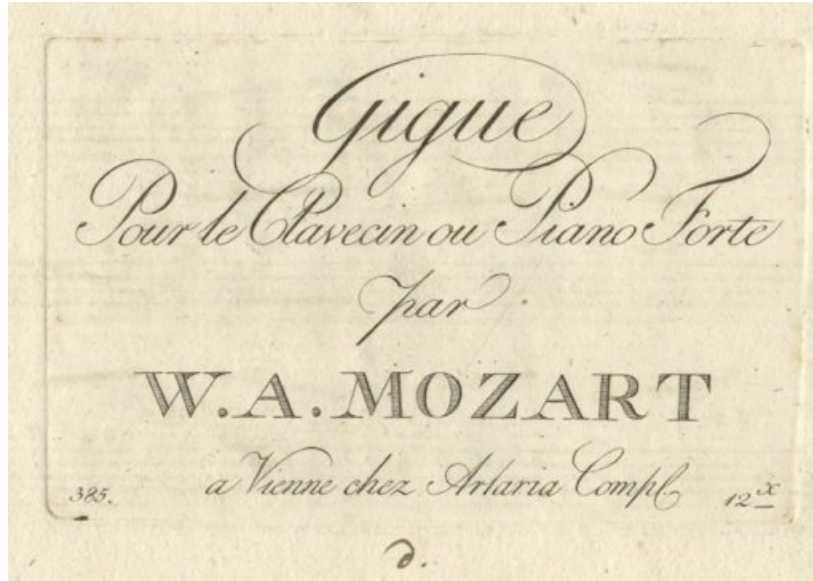 Gigue
Pour le Clavecin ou Piano Forte
par
W. A. MOZART
a Vienne chez Artaria Comp
385.
12 x
d.